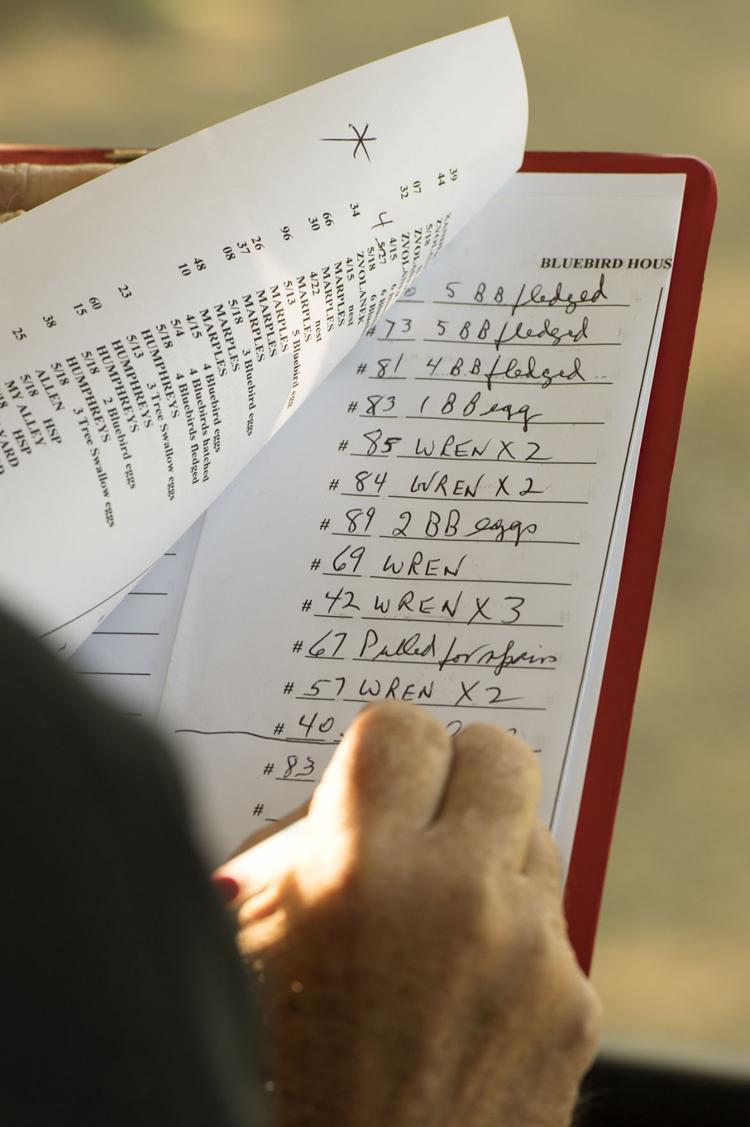 BLUEBIRD HOUS
5 BB fledged
# 73 5 BB fledged
# 81 4 BB fledged
# 83 1 BB egg
# 85 WREN X 2
# 84 WREN X 2
# 89 2 BB eggs
# 69 WREN
# 42 WREN X 3
# 67 Pulled for repairs
# 57 WREN X 2
# 40
# 83
#
39
44
07
32
4
5/27
5/18
4/15
ZVOLANEK
34
4/15 nest
MARPLES
66
30
MARPLES
4/22 nest
96
MARPLES
5/13 5 Bluebird egg
MARPLES
26
37
MARPLES
5/18 3 Bluebird eggs
08
MARPLES
48
10
MARPLES
4/15 4 Bluebird eggs
5/4 4 Bluebirds hatched
5/18 4 Bluebirds fledged
23
HUMPHREYS
5/13 3 Tree Swallow eggs
60
HUMPHREYS
15
HUMPHREYS
5/18 2 Bluebird eggs
38
HUMPHREYS
5/18 3 Tree Swallow eggs
25
ALLEN HSP
5/18
MY ALLEY HSP